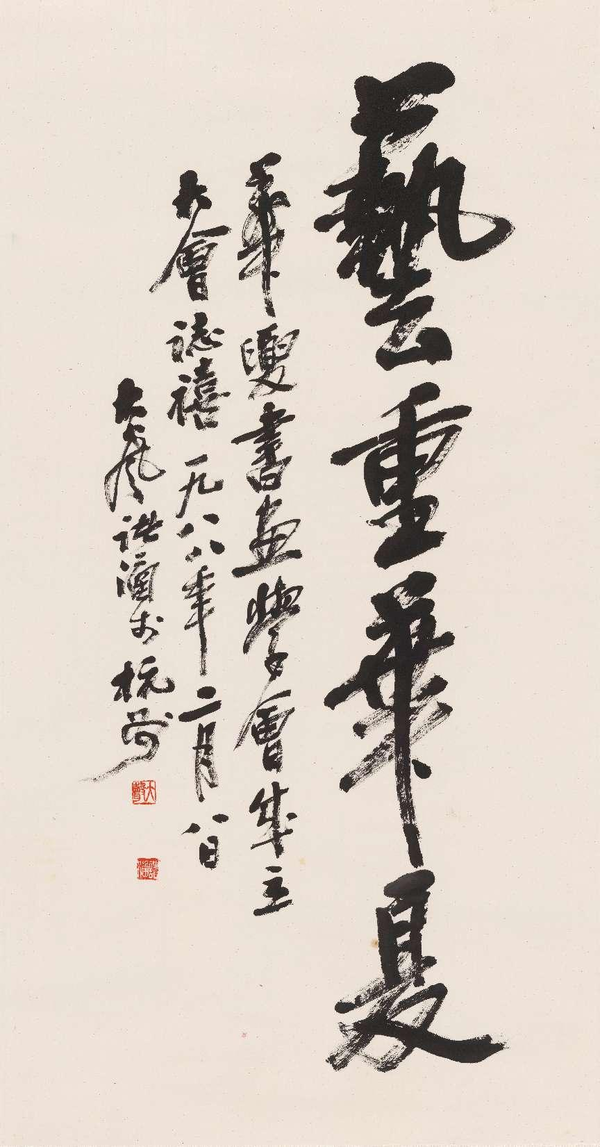 藝重華夏
華叟書畫學會成立
大會誌禧 一九八八年二月八日
大風諸涵於杭州